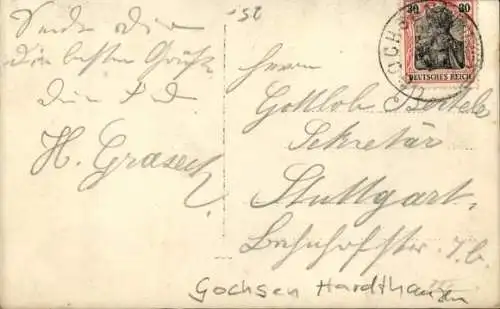 52
Sende dir
die besten Grüße
dein
H. Grasech
30 30
DEUTSCHES REICH
OCHS
Herrn
Gottlob Bertele
Sekretär
Stuttgart,
Bahnhofstr. 7b.
Gochsen Hardthausen